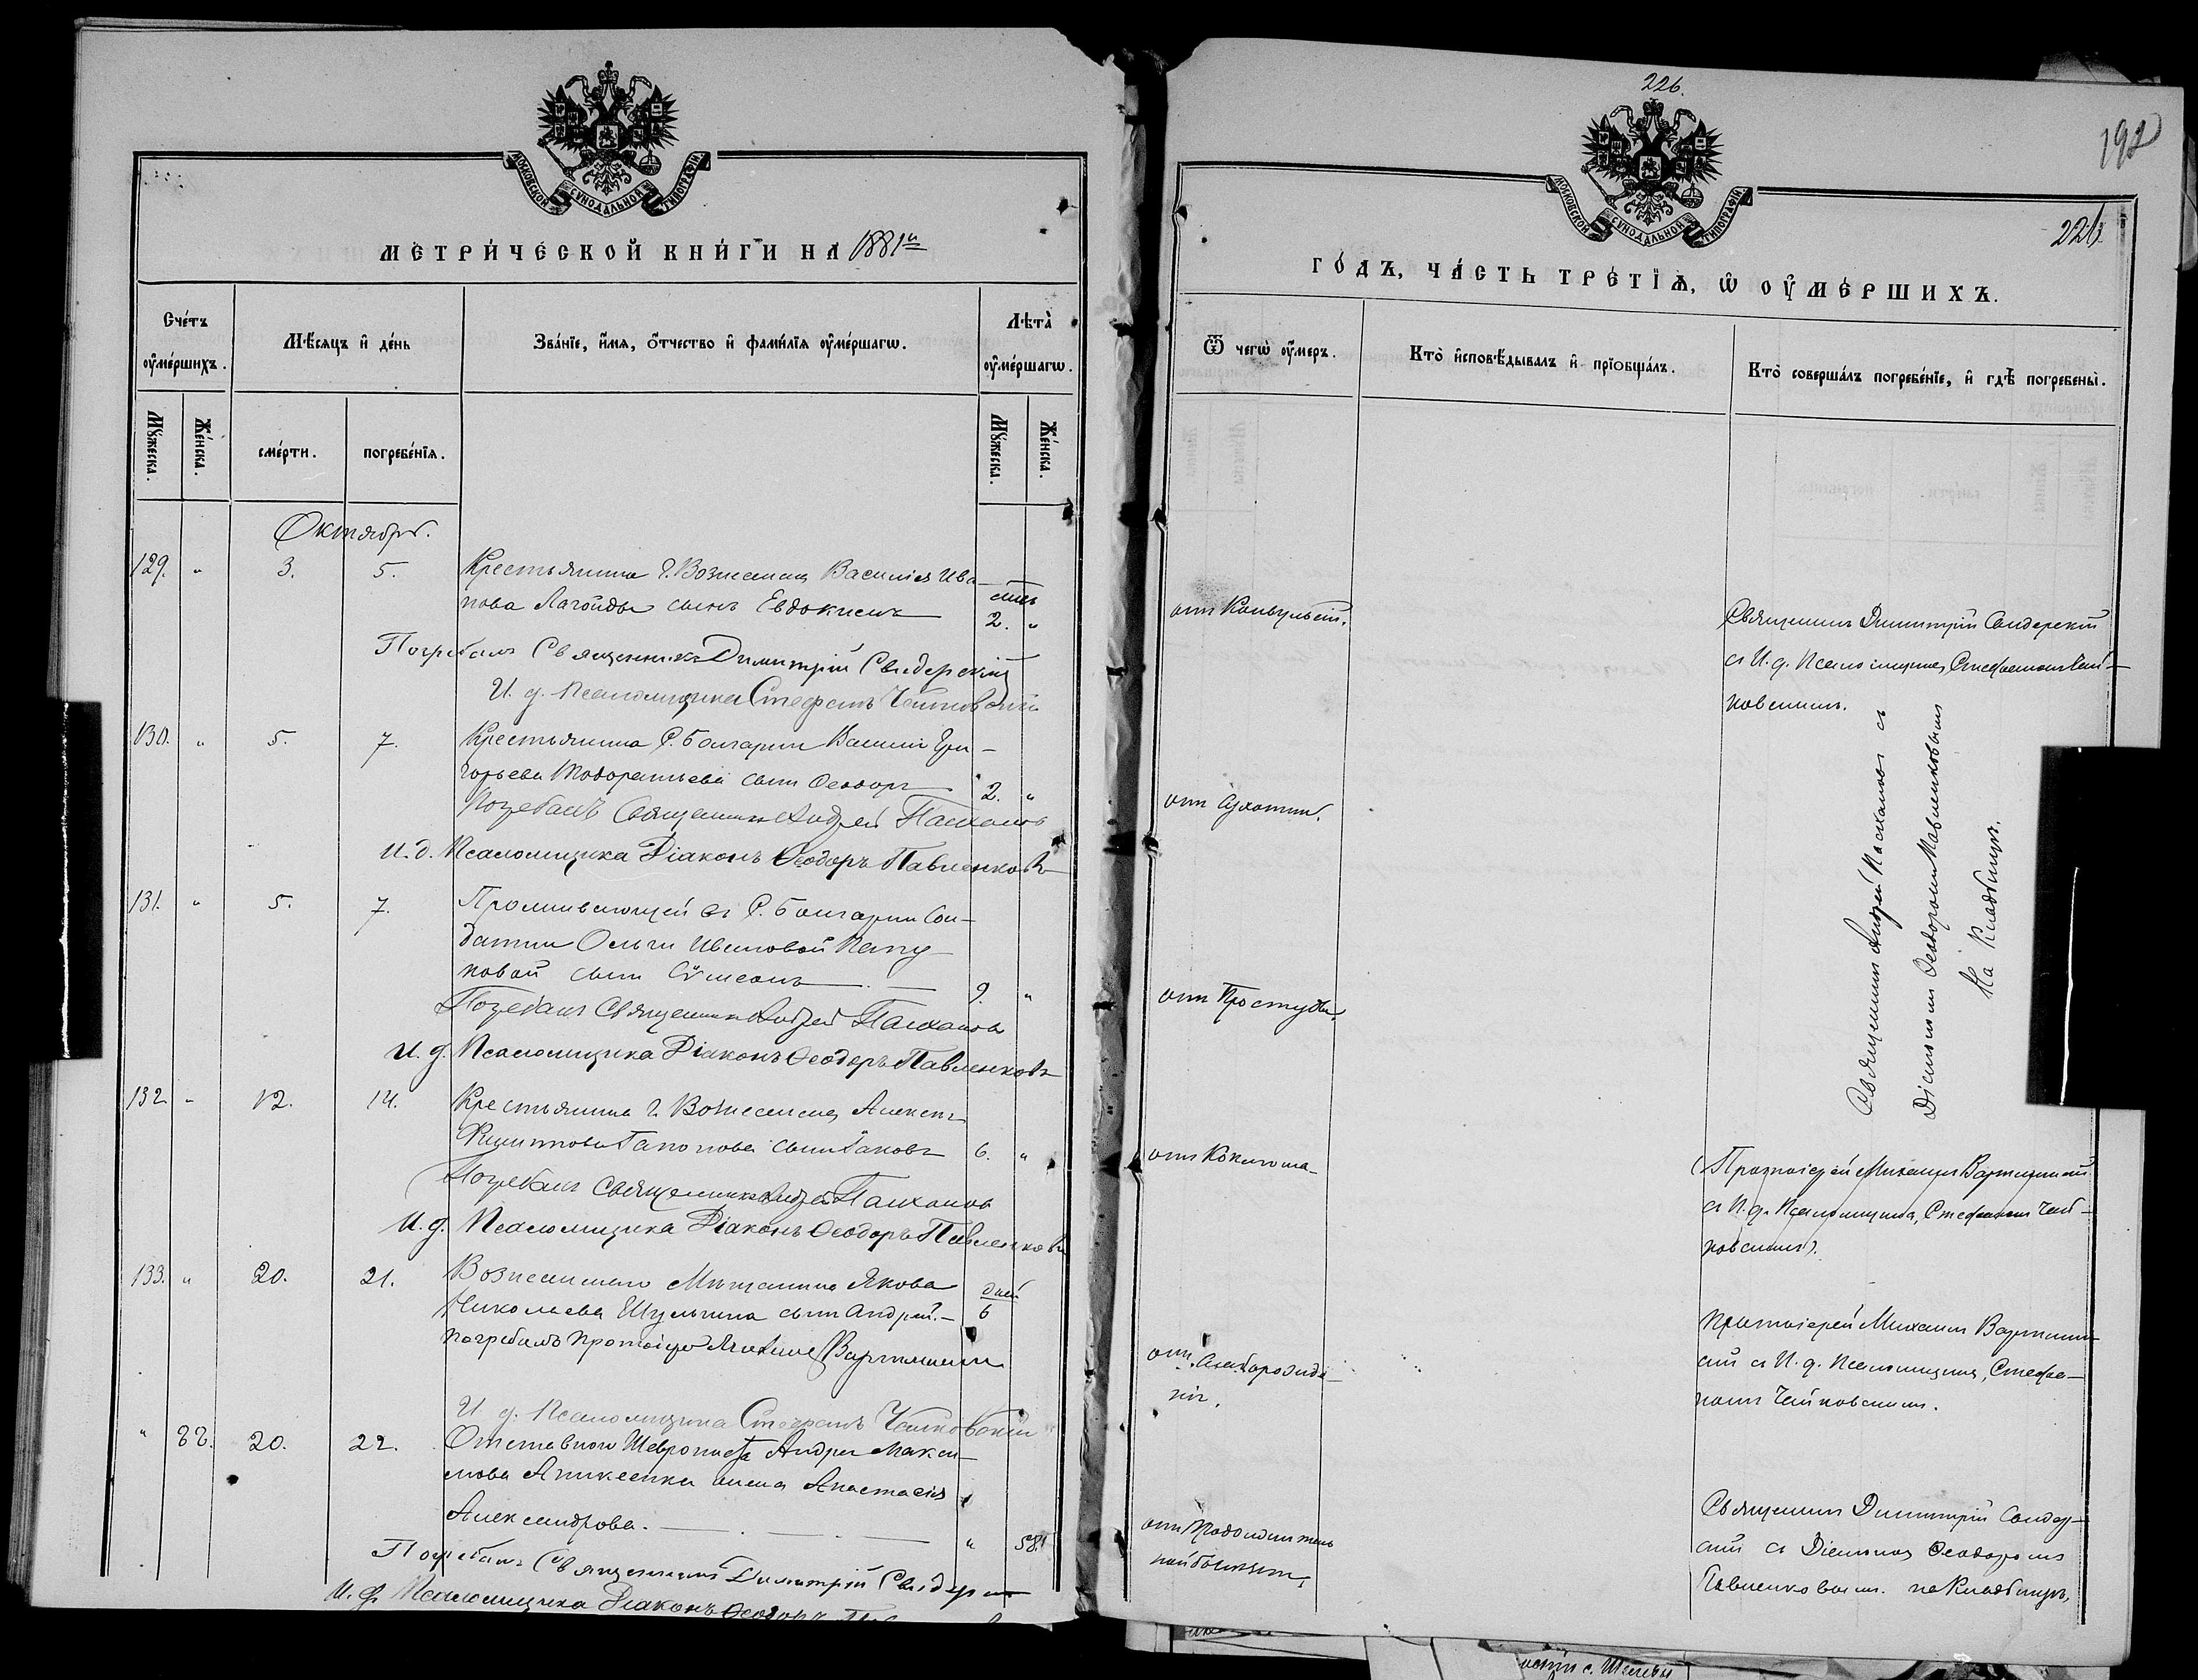 МОСКОВСКОЙ СѴНОДАЛЬНОЙ ТИПОГРАФІИ
МЕТРИ́ЧЕСКОЙ КНИ́ГИ НА 1881й
Сче́тъ оу҆ме́ршихъ.
Мѣ́сяцъ и҆ де́нь
Зва́нїе, и҆́мя, ѻ҆́тчество и҆ фами́лїя оу҆ме́ршагѡ.
Лѣта̀ оу҆ме́ршагѡ.
Мꙋ́жеска.
Же́нска.
сме́рти.
погребе́нїя.
Мꙋ́жеска.
Же́нска.
Октябрь.
129. " 3. 5. Крестьянина г. Вознесенска Василія Ива-
нова Лагойды сынъ Евдокимъ 2. "
Погребалъ Священникъ Димитрій Свидерскій
И. д. Псаломщика Стефанъ Чайковскій
130. " 5. 7. Крестьянина С. Болгарки Василія Гри-
горьева сынъ Ѳеодоръ 2. "
Погребалъ Священникъ Андрей Пасхаловъ
И. д. Псаломщика Діаконъ Ѳеодоръ Павленковъ
131. " 5. 7. Проживающей въ С. Болгарки Сол-
датки Ольги Ивановой
новой сынъ Сѵмеонъ 9. "
Погребалъ Священникъ Андрей Пасхаловъ
И. д. Псаломщика Діаконъ Ѳеодоръ Павленковъ
132 " 12. 14. Крестьянина г. Вознесенска
Филиппова Гапонова сынъ Іаковъ 6. "
Погребалъ Священникъ Андрей Пасхаловъ
И. д. Псаломщика Діаконъ Ѳеодоръ Павленковъ
133. " 20. 21. Вознесенскаго Мѣщанина Якова дней
Николаева Шульгина сынъ Андрей. 6
погребалъ Протоіерей Михаилъ
И. д. Псаломщика Стефанъ Чайковскій
" 88. 20. 22. Отставного Андрея Макси-
мова Аникеенка жена Анастасія
Александрова. " 58.
Погребалъ Священникъ Димитрій Свидерскій
И. д. Псаломщика Діаконъ Ѳеодоръ
226.
192
226.
МОСКОВСКОЙ СѴНОДАЛЬНОЙ ТИПОГРАФІИ
ГО́ДЪ, ЧА́СТЬ ТРЕ́ТЇѦ, Ѡ҆ ОУ҆МЕ́РШИХЪ.
Ѿ чегѡ̀ оу҆́меръ.
Кто̀ и҆сповѣ́дывалъ и҆ прїобща́лъ.
Кто̀ соверша́лъ погребе́нїе, и҆ гдѣ̀ погребены̀.
отъ Конвульсій.
Священникъ Димитрій Свидерскій
съ И. д. Псаломщика, Стефаномъ Чай-
ковскимъ.
отъ Сухотки.
отъ Простуды.
Священникъ Андрей Пасхаловъ съ
Діакономъ Ѳеодоромъ Павленковымъ
На Кладбищѣ.
отъ Коклюша
(Протоіерей Михаилъ
съ И. д. Псаломщика, Стефаномъ Чай-
ковскимъ).
отъ Слаборожде-
нія.
Протоіерей Михаилъ
съ И. д. Псаломщика, Стефа-
номъ Чайковскимъ.
отъ Продолжитель
ной болѣзни.
Священникъ Димитрій Свидер-
скій съ Діакономъ Ѳеодоромъ
Павленковымъ. на Кладбищѣ.